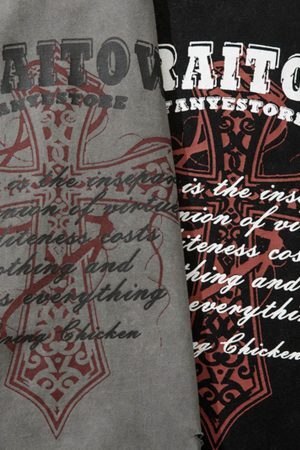 RAITOV
TANYESTORE
t is the insepara
nion of virtue
liteness costs
othing and
s everything
ring Chicken
RAITOV
TANYESTORE
is the insepa
nion of virtu
iteness costs
thing and
everything
ing Chicken